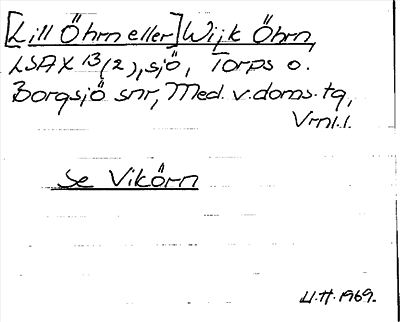 [Lill Öhrn eller] Wijk Öhrn,
LSA X 13 (2), sjö, Torps o.
Borgsjö snr, Med. v. doms. tg,
Vrnl. l.
Se Vikörn
U.H. 1969.